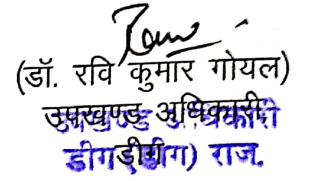 (डॉ. रवि कुमार गोयल)
उपखण्ड अधिकारी,
डीग (डीग) राज.